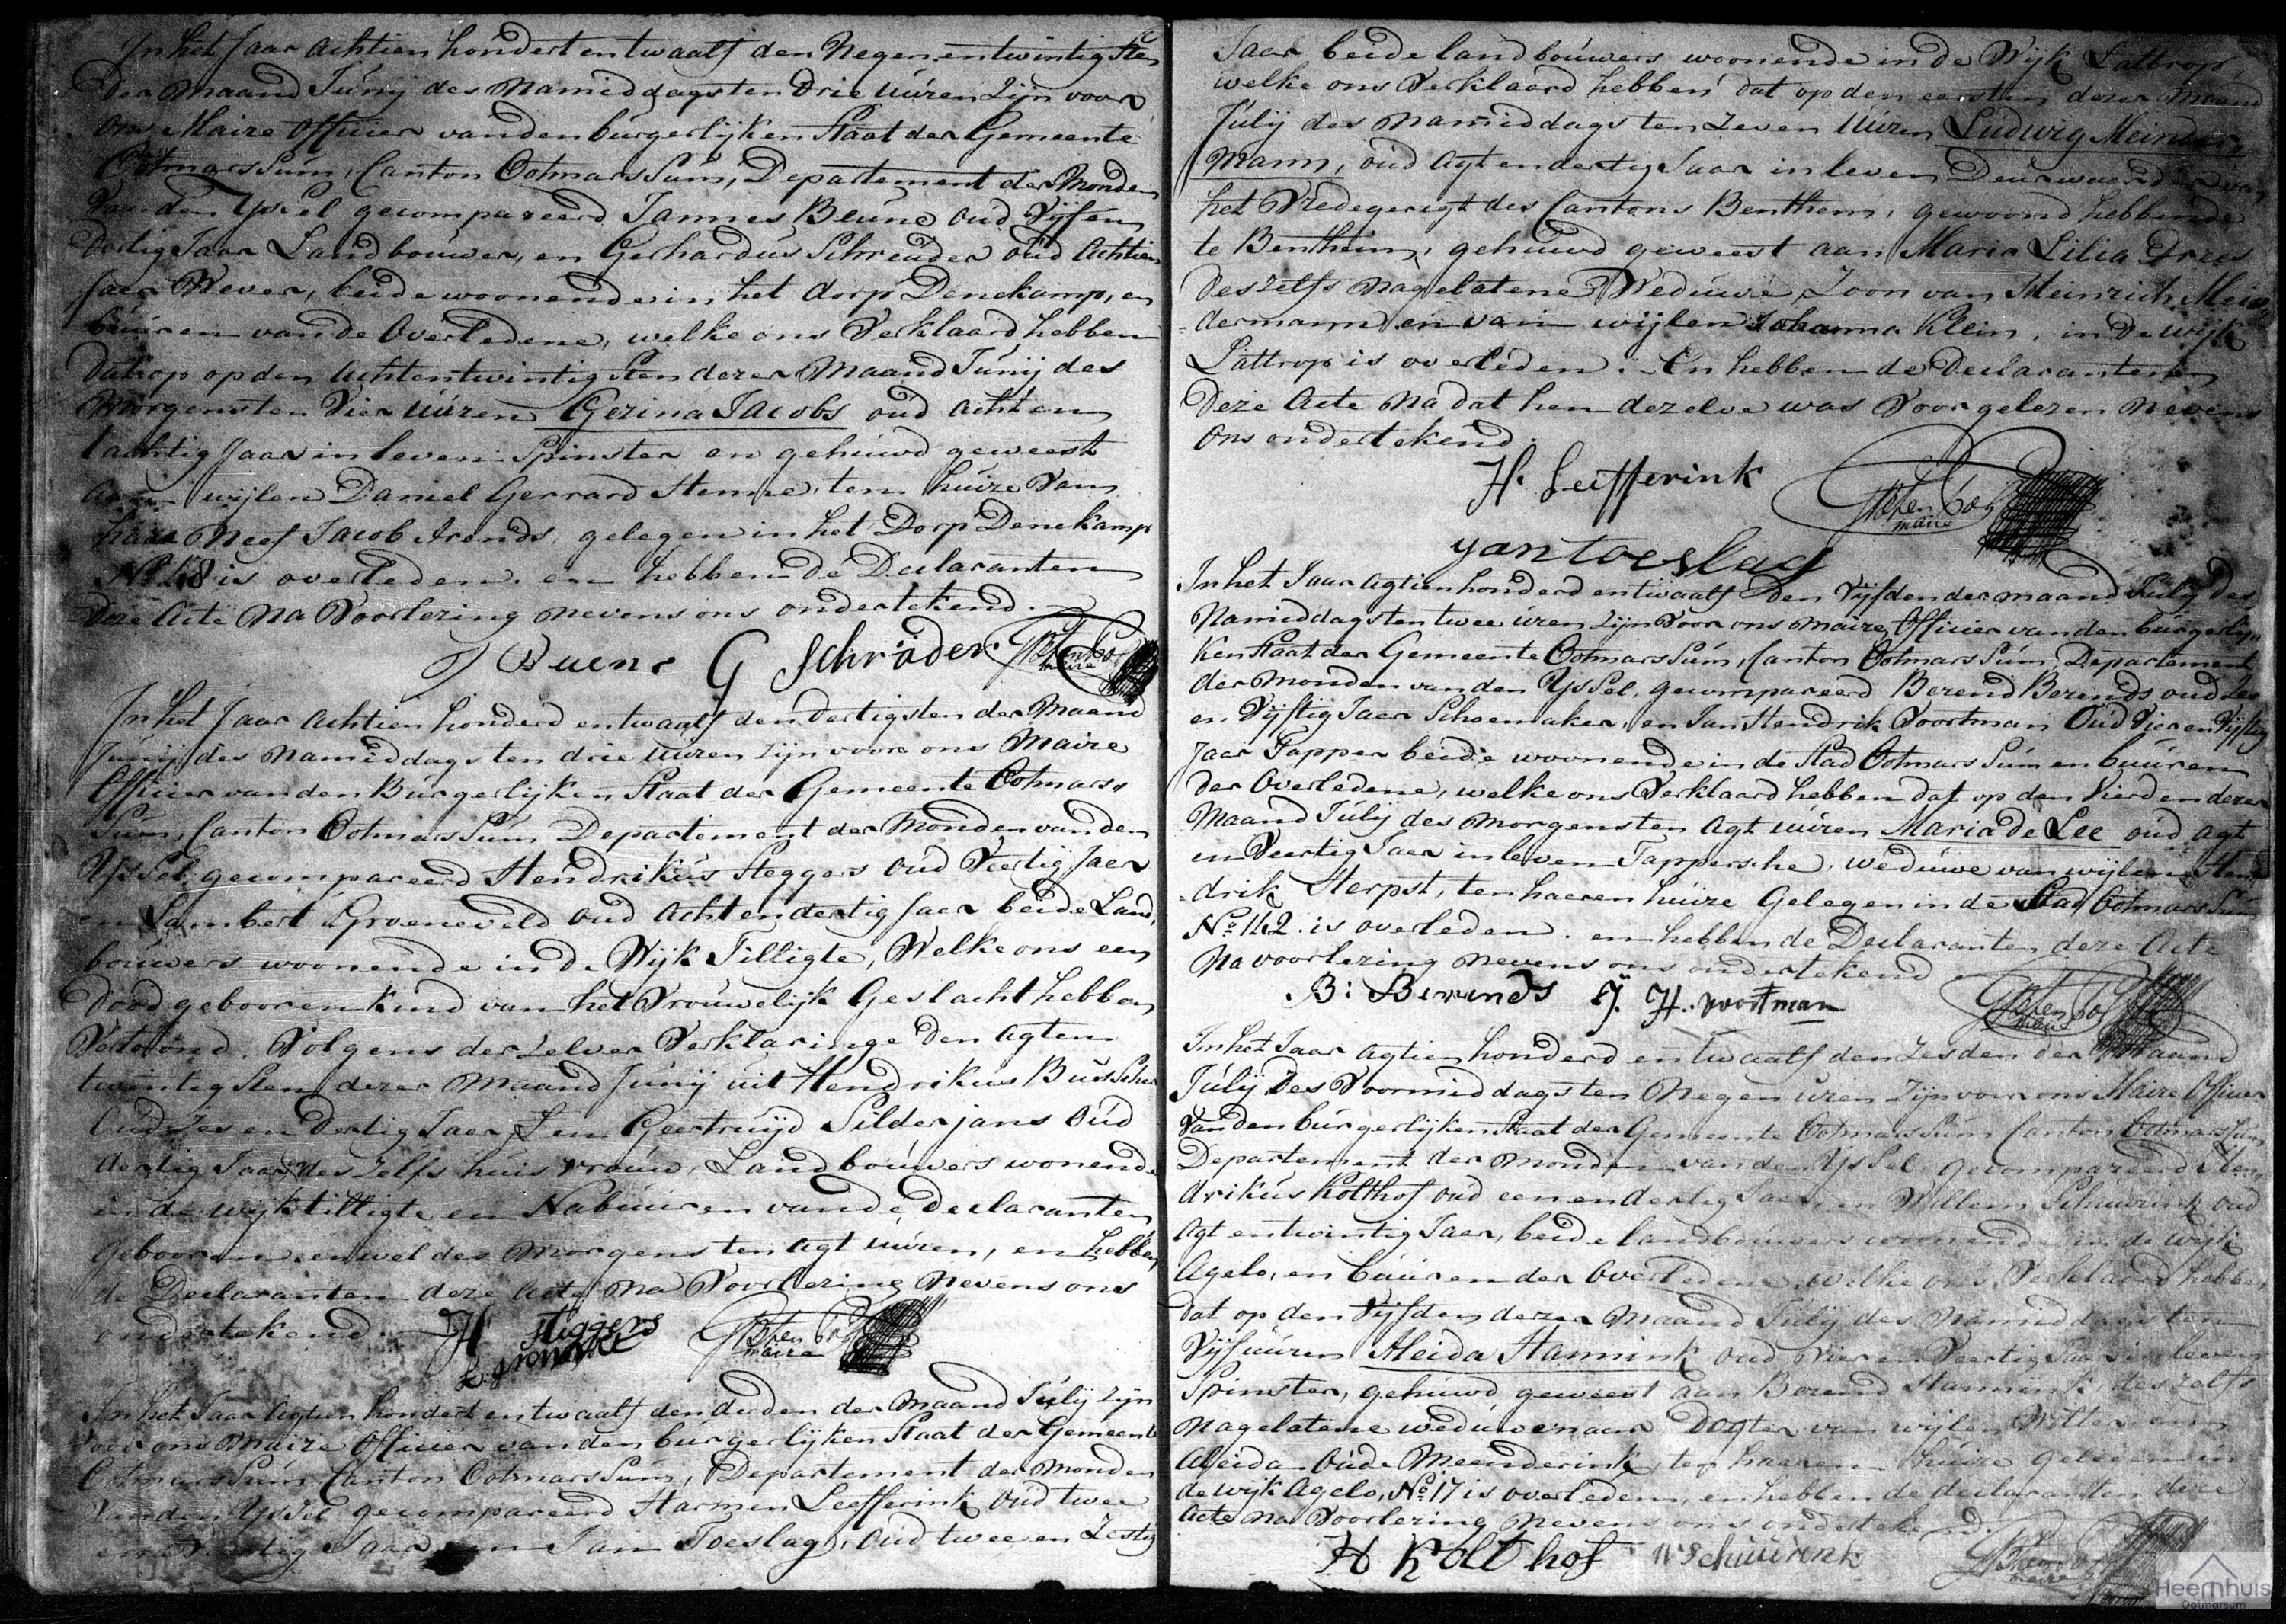 In het Jaar Achtien hondert en twaalf den Negen entwintigsten
der maand Junij des Namiddags ten Drie uúren Zijn voor
ons Maire Officier van den búrgerlijken Staat der Gemeente
OotmarsSúm, Canton OotmarsSúm, Departement der Monden
Van den Yssel gecompareerd Jannes Beúne oud Vijf en
Dertig Jaar Landboúwer, en Gerhardus Schreúder oúd Achtien
Jaer Wever, beide woonende in het dorp Denekamp, en
búúren van de Overledene, welke ons Verklaard hebben
Dat op op den Achtentwintigsten dezer Maand Júnij des
Morgens ten Vier úúren Gezina Jacobs oúd acht en
tachtig Jaar in leven Spinster en gehúwd geweest
aan wijlen Daniel Gerrard Hemme, ten húize van
haar Neef Jacob Arends, gelegen in het Dorp Denekamp
No 48 is overleden. en hebben de Declaranten
Deze Acte Na Voorlezing nevens ons ondertekend.
J Buene G Schröder
maire
In het Jaar Achtien honderd en twaalf den dertigsten der Maand
Júnij des Namiddags ten drie uúren zijn voor ons Maire
Officier van den Búrgerlijken Staat der Gemeente Ootmars
Súm, Canton OotmarsSúm Departement der Monden van den
YsSel, gecompareerd Hendrikús Steggers oud Veertig Jaer
en Lambert Groeneveld oud Acht en dertig Jaer beide Land
boúwers woonende in de Wijk Tilligte, Welke ons een
Dood gebooren Kind van het Vrouwelijk Geslacht hebben
Vertoond. Volgens derzelver Verklaringe Den Agten
twintigsten dezer Maand Júnij uit Hendrikus Bússcher
Oúd Zes en Dertig Jaer, en Geertruijd Silderjans Oúd
dertig Jaar, deszelfs huisvroúw, Landboúwers wonende
in de wijk tilligte en Nabúúren van de Declaranten
Gebooren en wel des Morgens ten Agt uúren, en hebben
de Declaranten deze Acte Na Voorlezing Nevens ons
ondertekend. H Steggers
maire
In het Jaar Agtien hondert en twaalf den derden der Maand Júlij zijn
Voor ons Maire Officier van den burgerlijken Staat der Gemeente
OotmarsSúm Canton OotmarsSúm, Departement der Monden
Van den YsSel gecompareerd Harmen Leefferink Oúd twee
en Jaar en Jan Toeslag, Oúd twee en Zestig
Jaar beide landboúwers woonende in de Wijk Lattrop,
welke ons Verklaard hebben dat op den eersten dezer Maand
Júlij des Namiddags ten Zeven Uúren Ludwig Meinder
Mann, oúd Agt en dertig Jaar in leven Deúrwaarder van
het Vredegeregt des Cantons Benthem, gewoond hebbende
te Bentheim, gehuwd geweest aan Maria Lilia Drees
Deszelfs Nagelatene Wedúwe, Zoon van Heinrich Mein
dermann en van wijlen Johanna Klein, in de wijk
Lattrop is overleden. En hebben de Declaranten
Deze Acte Na dat hen dezelve was Voorgelezen Nevens
Ons ondertekend.
H. Leifferink
maire
yan toeslag
In het Jaar Agtien honderd en twaalf Den Vijfden der maand Júlij Des
Namiddags ten twee uren zijn Voor ons Maire, Officier van den búrgerlij
Ken Staat der Gemeente OotmarsSúm, Canton OotmarsSúm, Departement
der Monden van den YsSel, gecompareerd Berend Berends oud Zes
en Vijftig Jaer Schoemaker, en Jan Hendrik Voortman Oúd Vier en Vijftig
Jaar Tapper beide woonende in de Stad OotmarsSúm en búúren
der Overledene, welke ons Verklaard hebben dat op den Vierden dezer
Maand Júlij des Morgens ten Agt uúren Maria de Lee oúd agt
en Veertig Jaer in leven Tappersche, wedúwe van wijlen Hen
drik Herpst, ten haeren húize Gelegen in de Stad OotmarsSúm
No 142. is overleden. en hebben de Declaranten deze Acte
Na voorlezing nevens ons ondertekend
B: Berends J. H. voortman
In het Jaar Agtien honderd en twaalf den Zesden der Maand
Júlij Des Voormiddags ten Negen uren Zijn voor ons Maire Officier
Van den búrgerlijken Staat der Gemeente OotmarsSúm Canton OotmarsSúm
Departement der Monden van den YsSel gecompareerd Hen
drikús Kolthof oud een en dertig Jaer, en Willem Schúúrink oud
Agt en twintig Jaer, beide landboúwers woonende in de wijk
Agelo, en búúren der Overledene, welke ons Verklaard hebben
dat op den Vijfden dezer Maand Júlij des Namiddags ten
Vijf uúren Aleida Hannink oud Vier en Veertig Jaar in leven
Spinster, gehúwd geweest aan Berend Hannink, deszelfs
Nagelatene wedúwenaar Dogter van wijlen Wolter en
Aleida Oúde Meenderink, ten haaren húize gelegen in
de wijk Agelo, No 17 is overleden, en hebben de declaranten deze
Acte na Voorlezing Nevens ons ondertekend.
H Kolthof W Schuurink
maire
Heemhuis
Ootmarsum